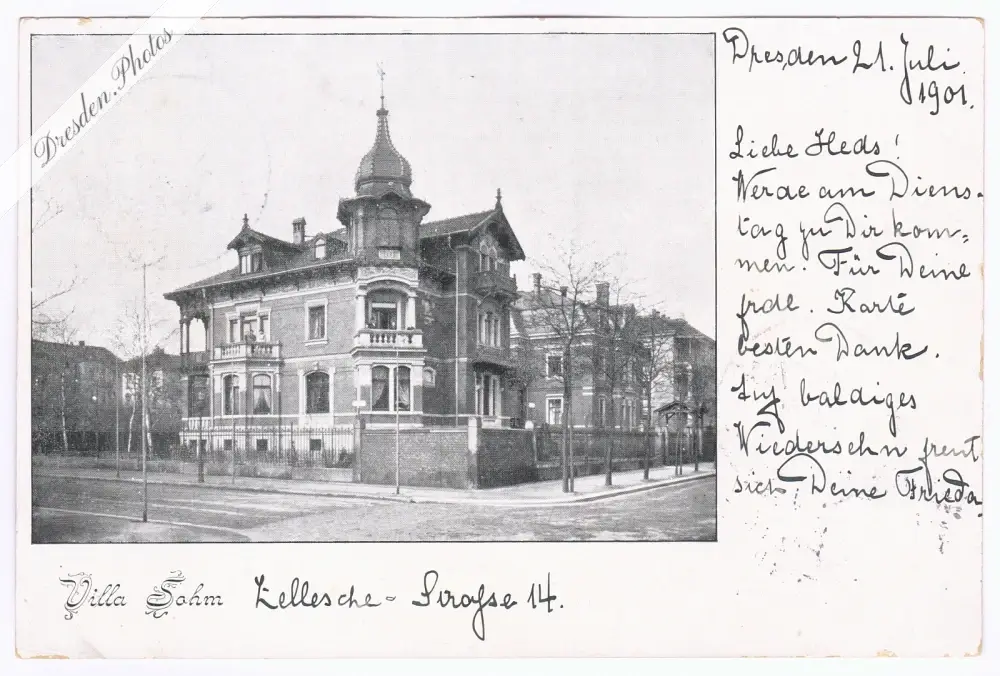 Dresden.Photos
Dresden 21. Juli
1901.
Liebe Heds!
Werde am Diens-
tag zu Dir kom-
men. Für Deine
frdl. Karte
besten Dank.
Auf baldiges
Wiedersehn freut
sich, Deine Frieda.
Villa Sohm Zellesche-Straße 14.